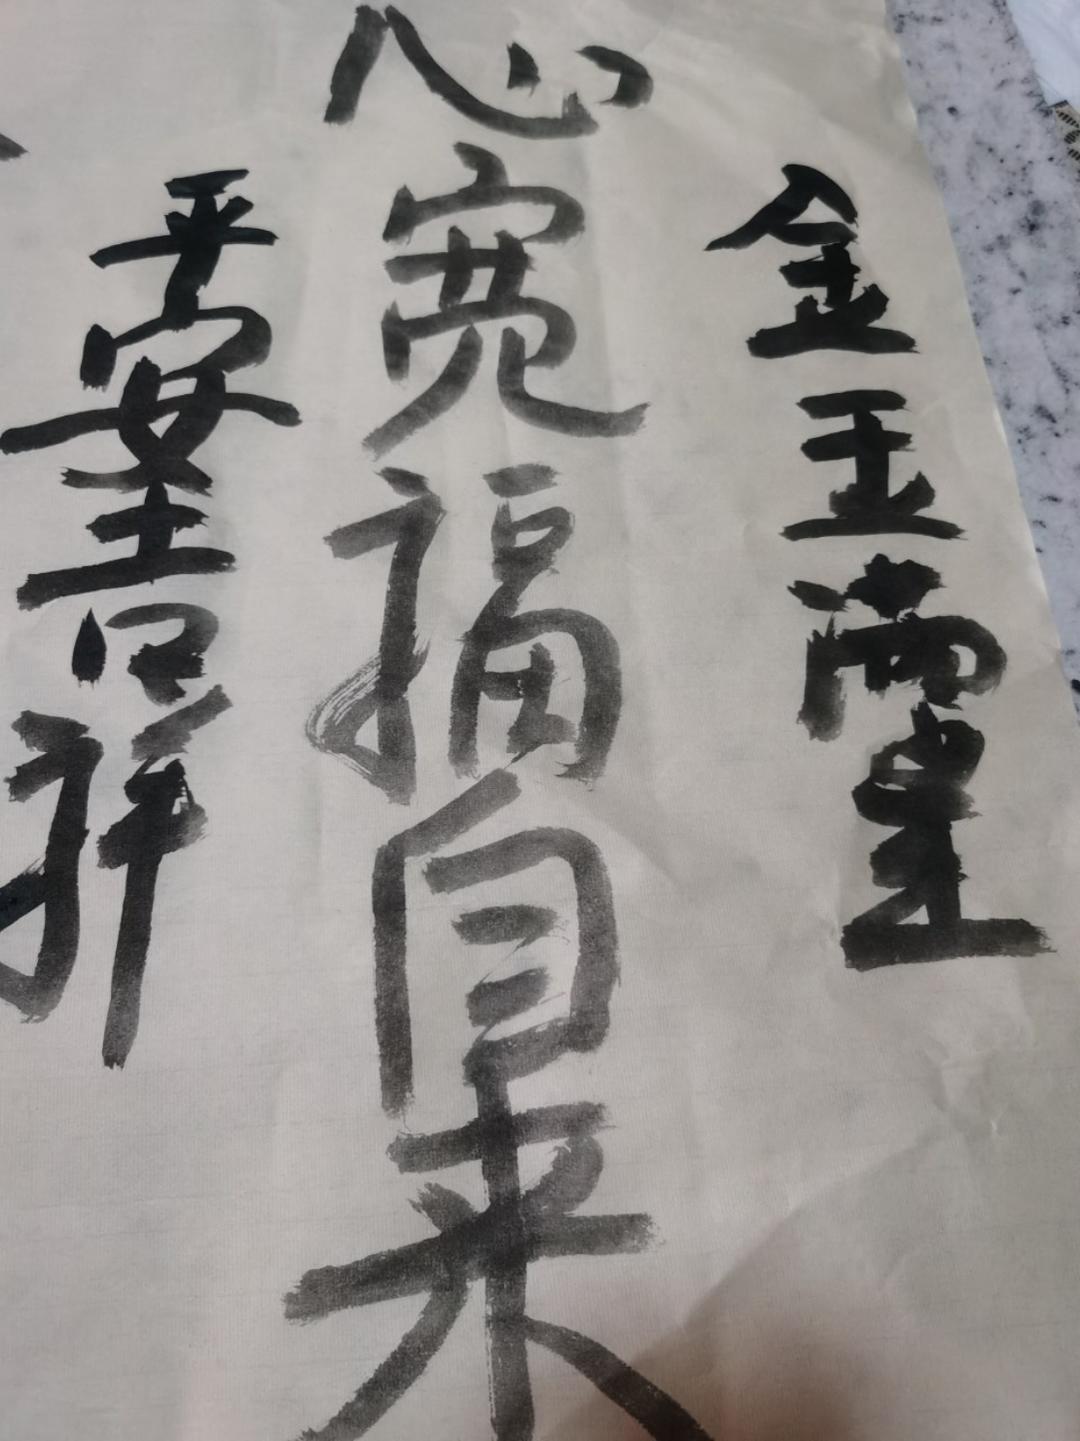 金玉满堂
心宽福自来
平安吉祥